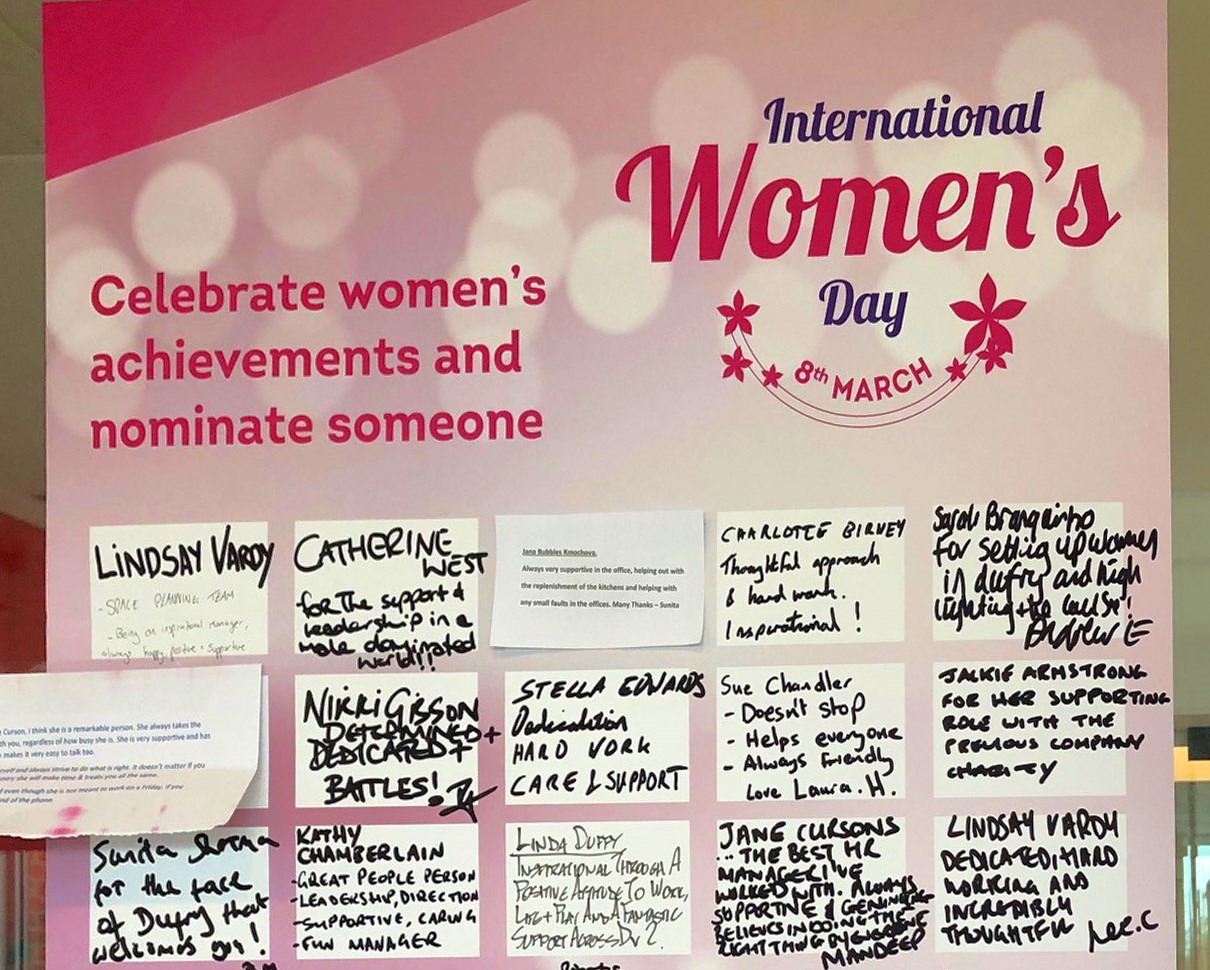 International
Women's
Day
8th MARCH
Celebrate women's
achievements and
nominate someone
LINDSAY VARDY
- SPACE PLANNING TEAM
- Being an inspirational manager,
always happy, positive + supportive
CATHERINE
WEST
for The support &
leadership in a
male dominated
world!!
Jana Bubbles Kmochova,
Always very supportive in the office, helping out with
the replenishment of the kitchens and helping with
any small faults in the offices. Many Thanks – Sunita
CHARLOTTE BIRNEY
Thoughtful approach
& hard work.
Inspirational !
Sarah Branquinho
for setting up women
in dufry and high
lighting the cause!
Andrew E
Curson, I think she is a remarkable person. She always takes the
th you, regardless of how busy she is. She is very supportive and has
makes it very easy to talk too.
rself and always strive to do what is right. It doesn't matter if you
ntry she will make time & treats you all the same.
f even though she is not meant to work on a Friday, if you
nd of the phone.
NIKKI GIBSON
DETERMINED +
DEDICATED +
BATTLES!
STELLA EDWARDS
Dedication
HARD WORK
CARE & SUPPORT
Sue Chandler
- Doesn't stop
- Helps everyone
- Always friendly
Love Laura. H.
JACKIE ARMSTRONG
FOR HER SUPPORTING
ROLE WITH THE
PREVIOUS COMPANY
CHARITY
Sunita
for the face
of Dufry that
welcomes you!
KATHY
CHAMBERLAIN
-GREAT PEOPLE PERSON
-LEADERSHIP, DIRECTION
-SUPPORTIVE, CARING
-FUN MANAGER
LINDA DUFFY
INSPIRATIONAL THROUGH A
POSITIVE ATTITUDE TO WORK,
LIFE + PLAY AND A FANTASTIC
SUPPORT ACROSS DIV 2.
JANE CURSONS
... THE BEST HR
MANAGER I'VE
WORKED WITH. ALWAYS
SUPPORTIVE & GENUINE
BELIEVES IN DOING THE
RIGHT THING BY EVERYONE
MANDEEP
LINDSAY VARDY
DEDICATED, HARD
WORKING AND
INCREDIBLY
THOUGHTFUL
Lee.C